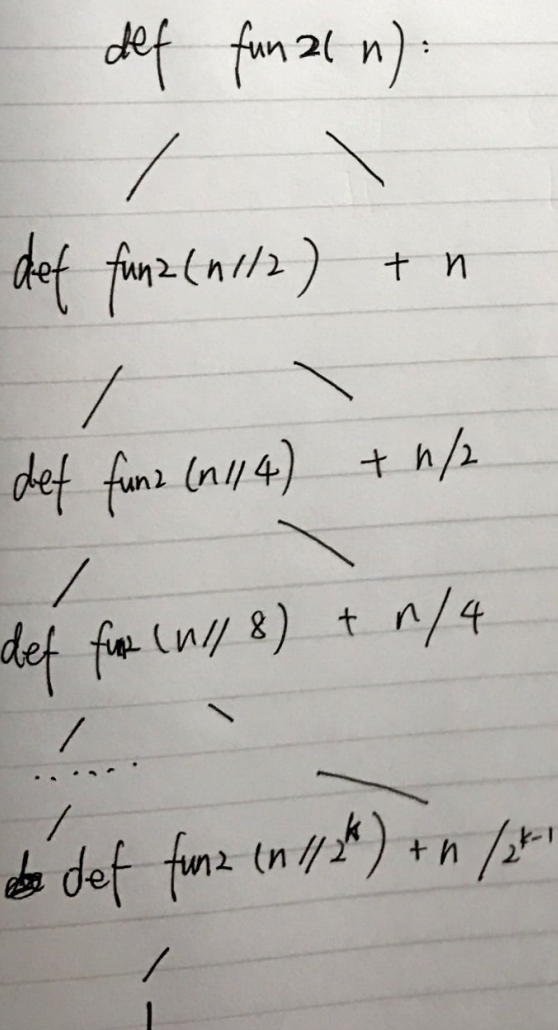 def fun2(n):
def fun2(n//2) + n
def fun2(n//4) + n/2
def fun2(n//8) + n/4
......
def fun2(n//2^k) + n/2^k-1
1